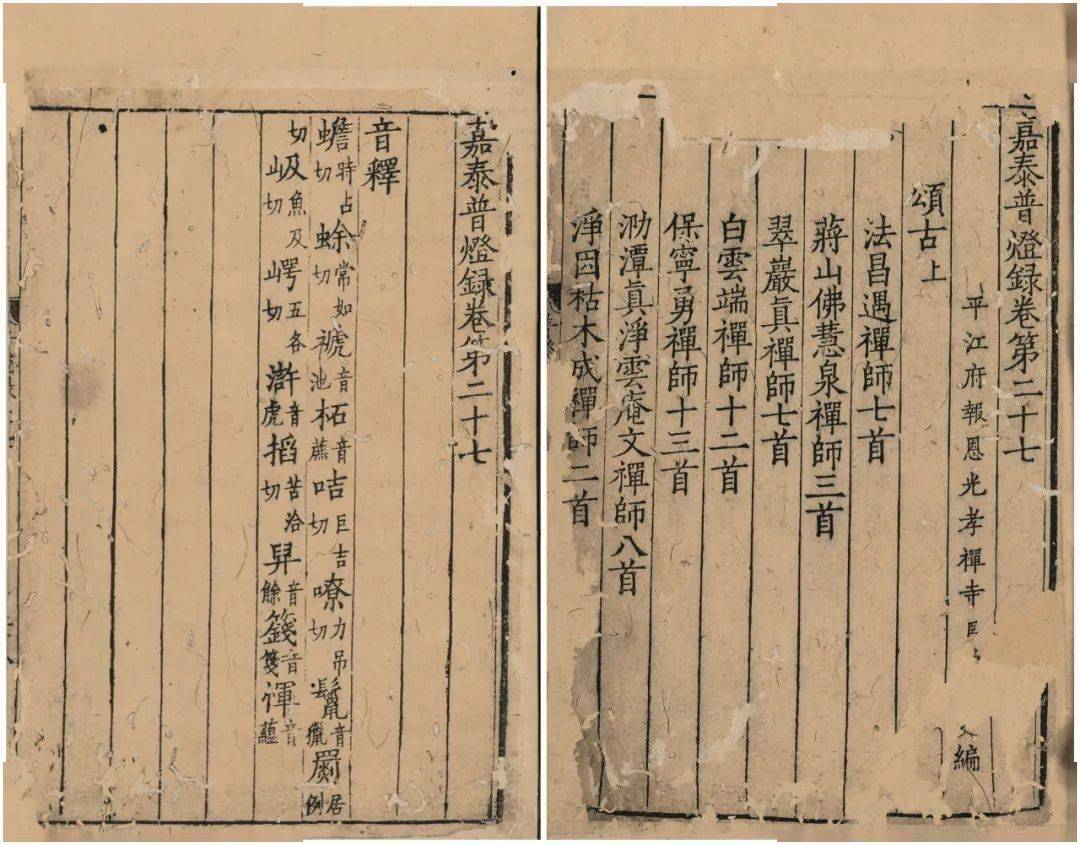 嘉泰普燈録卷第二十七
平江府報恩光孝禪寺臣 編
頌古上
法昌遇禪師七首
蔣山佛慧泉禪師三首
翠巖眞禪師七首
白雲端禪師十二首
保寧勇禪師十三首
泐潭眞淨雲庵文禪師八首
淨因枯木成禪師二首
嘉泰普燈録卷第二十七
音釋
蟾時占切蜍常如切褫音池柘音蔗咭巨吉切嘹力吊切鬣音獵罽居例
切岌魚及切崿五各切滸音虎搯苦洽切舁音餘籛音箋惲音蘊